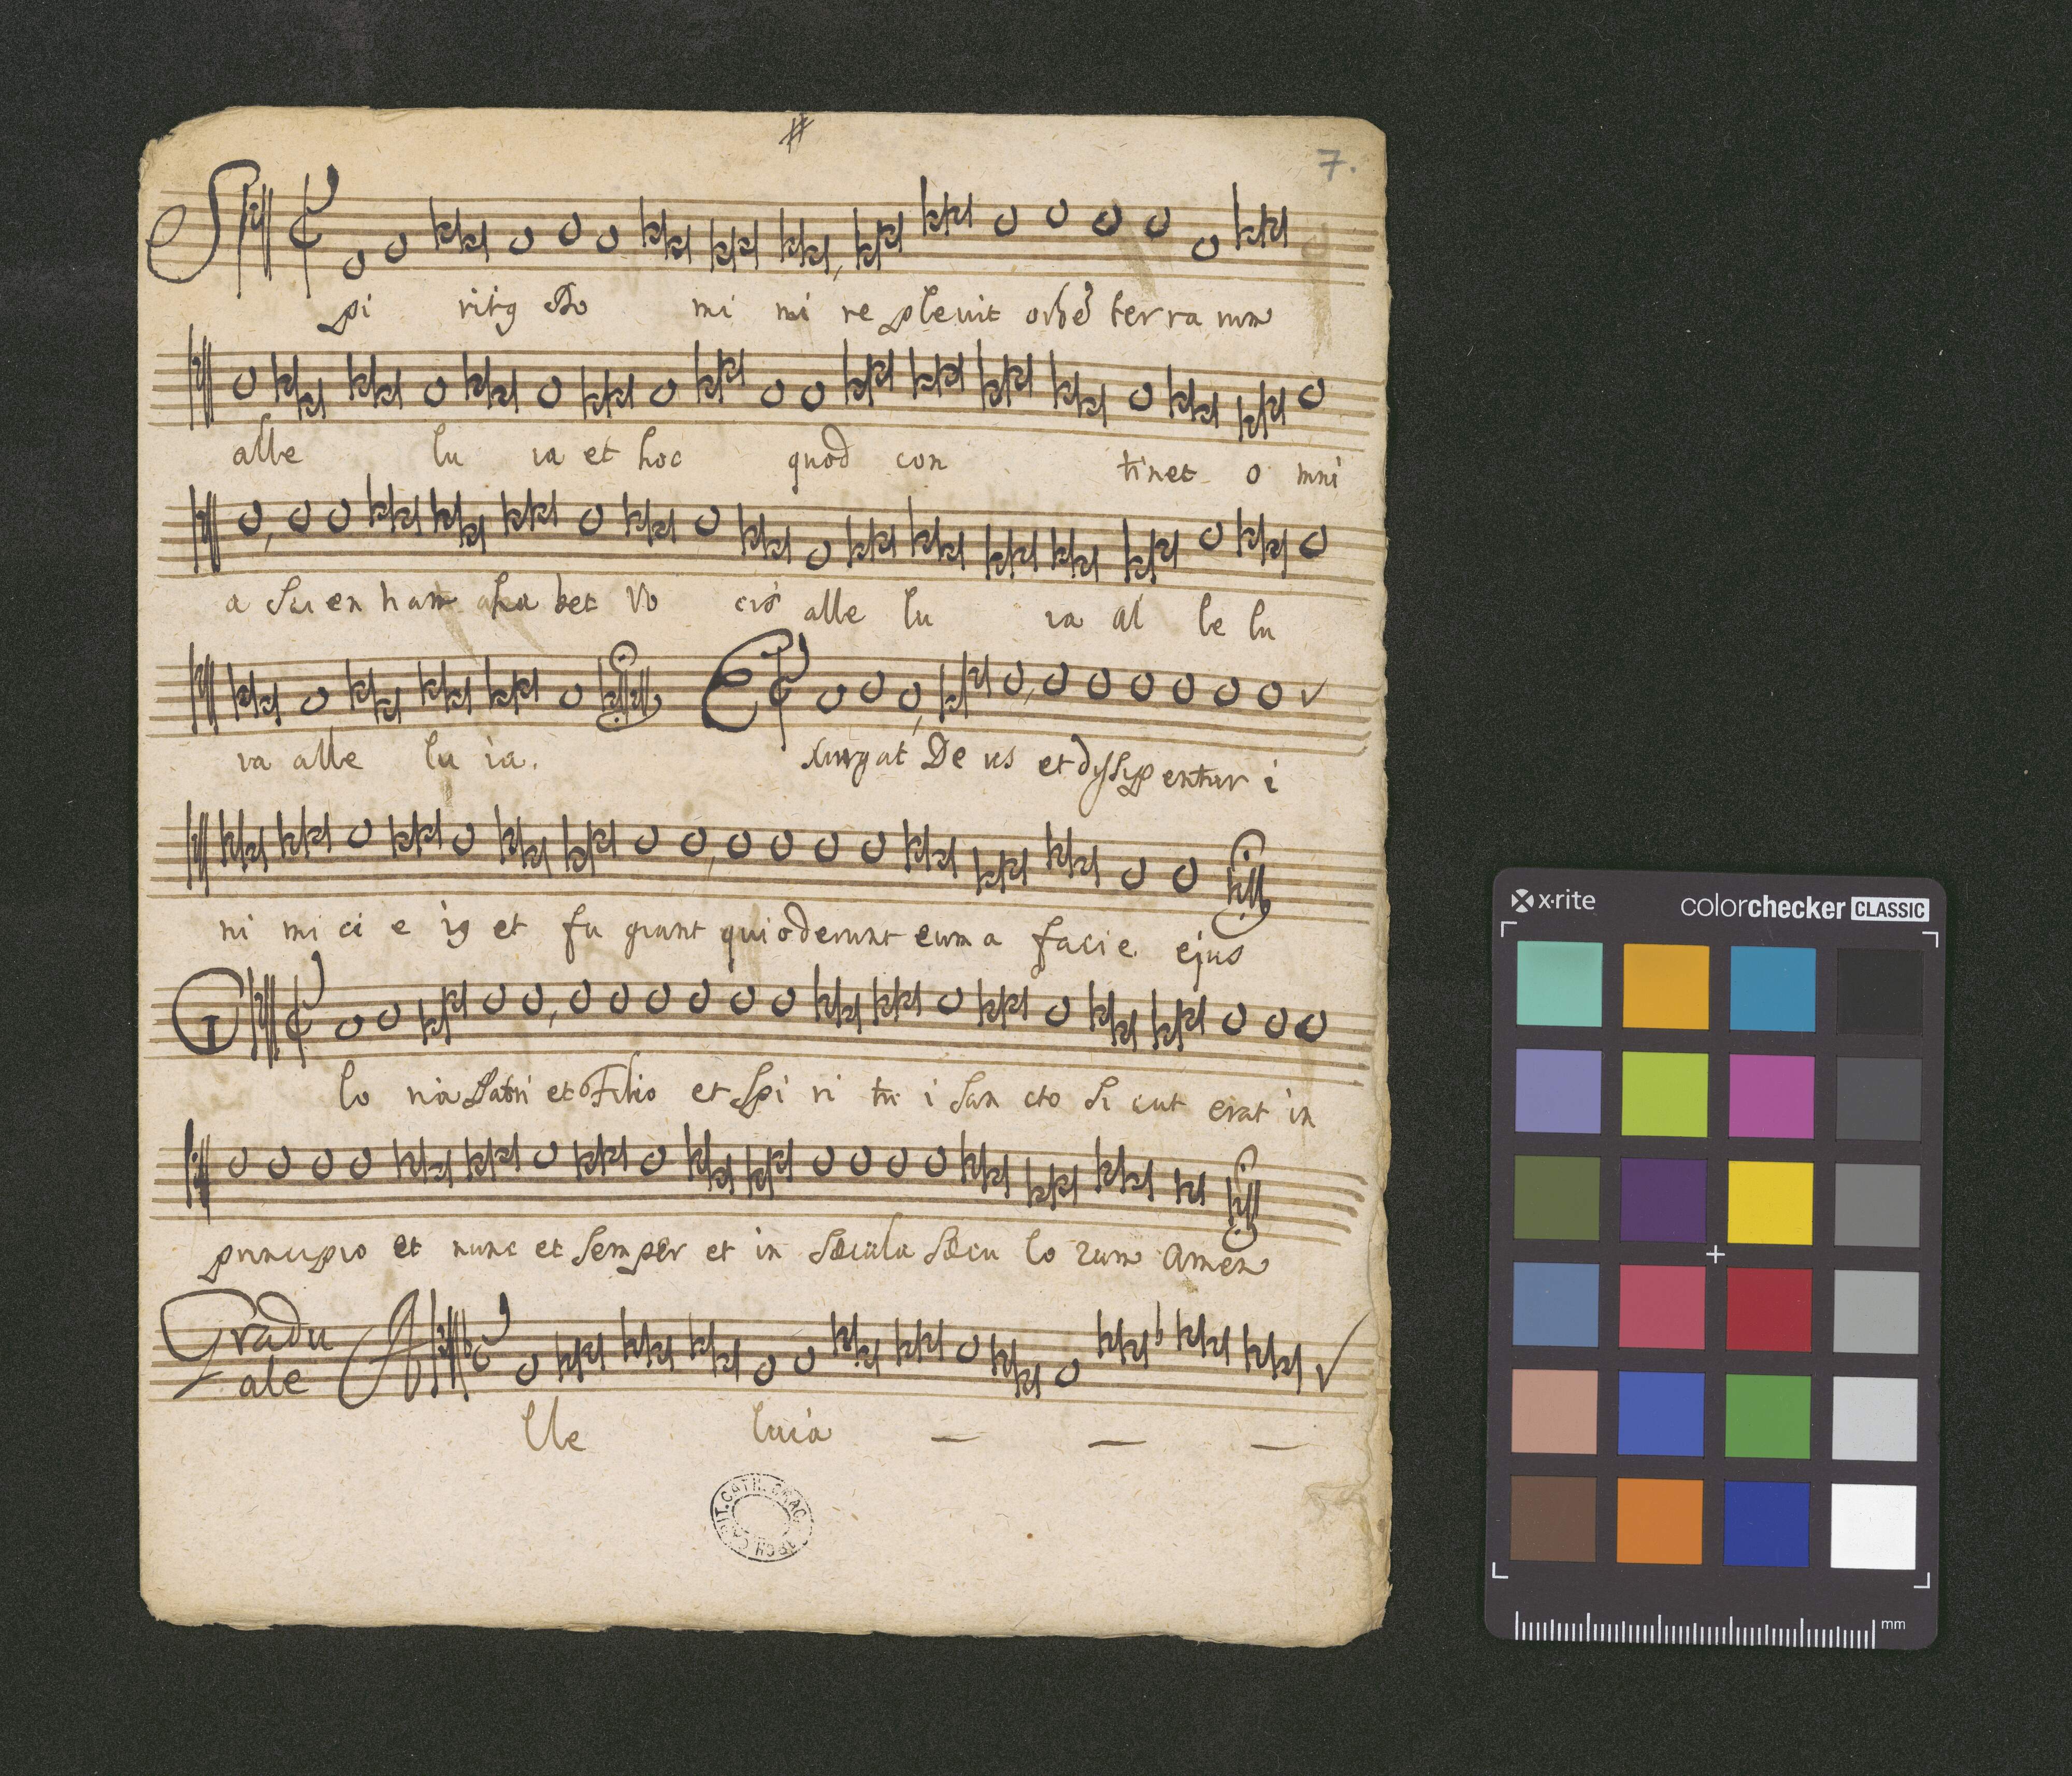 7.
Spi ritq Do mi mi re plevit orbē terra rum
alle lu ia et hoc quod con tinet o mni
a Scien tiam ha bet vo cis alle lu ia al le lu
ia alle lu ia. Exurgat De us et dyssypentur i
ni mi ci e iq et fu giant qui oderunt eum a facie ejus
Glo ria Patri et Filio et Spi ri tu i San cto Si cut erat in
principio et nunc et Semper et in Sæcula Sæcu lo rum Amen
Gradu
ale Alle luia
x-rite colorchecker CLASSIC
mm